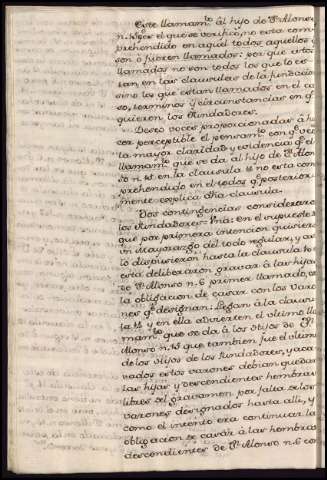 Este llamam.to al hijo de D.n Alonso
n.15 es el que se verificó, no esta com-
prehendido en aquel todos aquellos
son ó fueren llamados: por que estos
llamados no son todos los que lo es-
tan en las clausulas de la fundacion
sino los que estan llamados en el ca-
so, terminos y circunstancias en q.e
quieren los fundadores.
Deseo voces proporcionadas á ha-
cer perceptible el pensam.to con q.e
la mayor claridad y evidencia q.e el
llamam.to que se da al hijo de D.n Alon-
so n.15 en la clausula no esta com-
prehendido en el todos q.e posterior-
mente explica dha clausula.
Dos contingencias consideraron
los fundadores. Una: En el supuesto
que por primera intencion quisieron
un Mayorazgo del todo regular, y asi
lo dispusieron hasta la clausula
esta deliberaron gravar á las hijas
de D.n Alonso n.6 primer llamado,
la obligacion de casar con los Varo-
nes q.e designan: Llegan á la clausu-
la y en ella advierten el ultimo lla-
mam.to que se da á los hijos de D.n
Alonso n.15 que tambien fue el ultimo
de los hijos de los fundadores, y aca-
vados estos varones debian quedar
las hijas y descendientes hembras
libres del gravamen por falta de los
varones designados hasta alli, y
como el intento era continuar la
obligacion de casar á las hembras
descendientes de D.n Alonso n.6 con